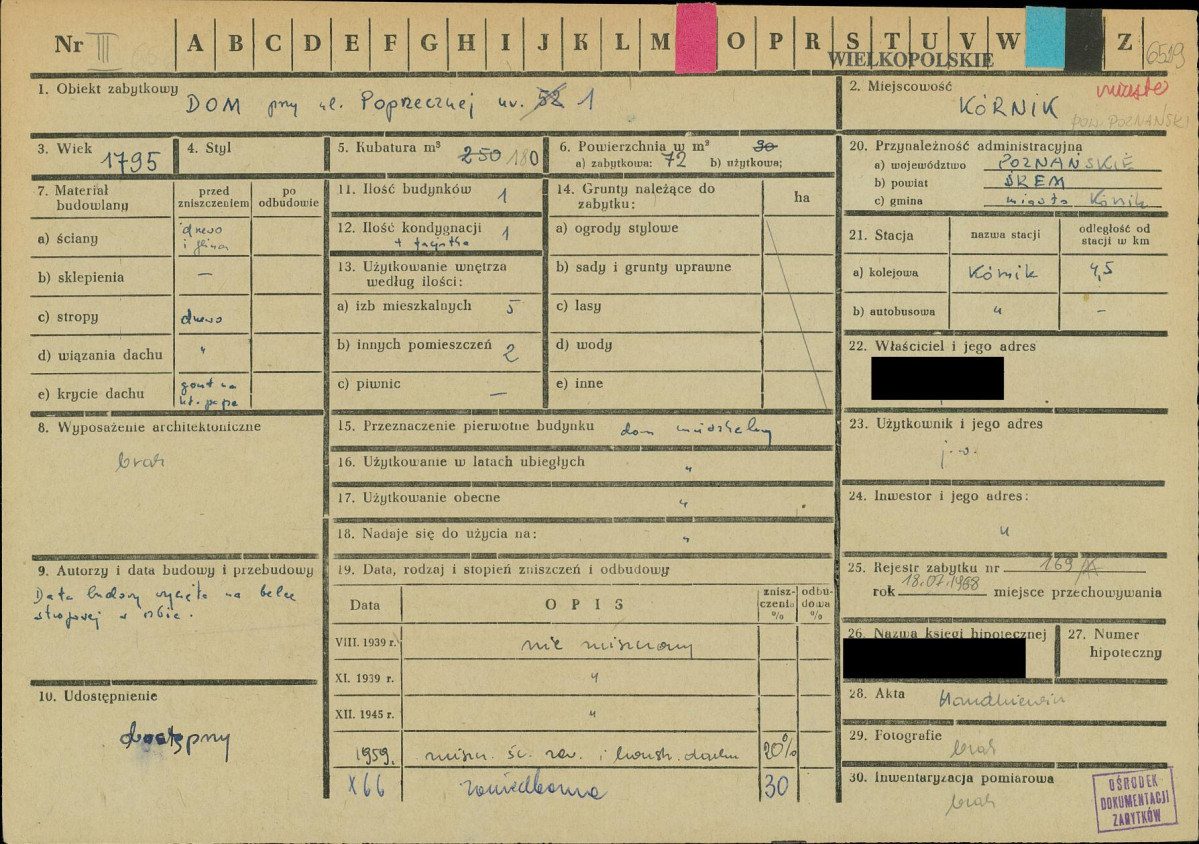 Nr III A B C D E F G H I J K L M O P R S T U V W Z 6519
WIELKOPOLSKIE
1. Obiekt zabytkowy DOM przy ul. Poprzecznej nr. 52 1
2. Miejscowość miasto
KÓRNIK
pow. POZNAŃSKI
3. Wiek 1795
4. Styl
5. Kubatura m³ 250 180
6. Powierzchnia w m² 30
a) zabytkowa: 72 b) użytkowa;
20. Przynależność administracyjna
a) województwo POZNAŃSKIE
b) powiat ŚREM
c) gmina miasto Kórnik
7. Materiał budowlany
przed zniszczeniem
po odbudowie
a) ściany drewo i glina
b) sklepienia —
c) stropy drewo
d) wiązania dachu "
e) krycie dachu gont na papa
11. Ilość budynków 1
12. Ilość kondygnacji 1
+ facjatka
13. Użytkowanie wnętrza według ilości:
a) izb mieszkalnych 5
b) innych pomieszczeń 2
c) piwnic —
14. Grunty należące do zabytku:
ha
a) ogrody stylowe
b) sady i grunty uprawne
c) lasy
d) wody
e) inne
21. Stacja
nazwa stacji
odległość od stacji w km
a) kolejowa Kórnik 4,5
b) autobusowa " –
22. Właściciel i jego adres
8. Wyposażenie architektoniczne
brak
15. Przeznaczenie pierwotne budynku dom mieszkalny
16. Użytkowanie w latach ubiegłych "
17. Użytkowanie obecne "
18. Nadaje się do użycia na: "
23. Użytkownik i jego adres
j.w.
24. Inwestor i jego adres:
"
9. Autorzy i data budowy i przebudowy
Data budowy wycięta na belce
stropowej w izbie.
19. Data, rodzaj i stopień zniszczeń i odbudowy
Data
OPIS
znisz-czenia %
odbu-dowa %
VIII. 1939 r. nie zniszczony
XI. 1939 r. "
XII. 1945 r. "
1959. zniszcz. śc. zew. i konstr. dachu 20%
X 66 zaniedbane 30
25. Rejestr zabytku nr 169/A
rok 18.07.1968 miejsce przechowywania
26. Nazwa księgi hipotecznej
27. Numer hipoteczny
10. Udostępnienie
dostępny
28. Akta
29. Fotografie
brak
30. Inwentaryzacja pomiarowa
brak
OŚRODEK
DOKUMENTACJI
ZABYTKÓW